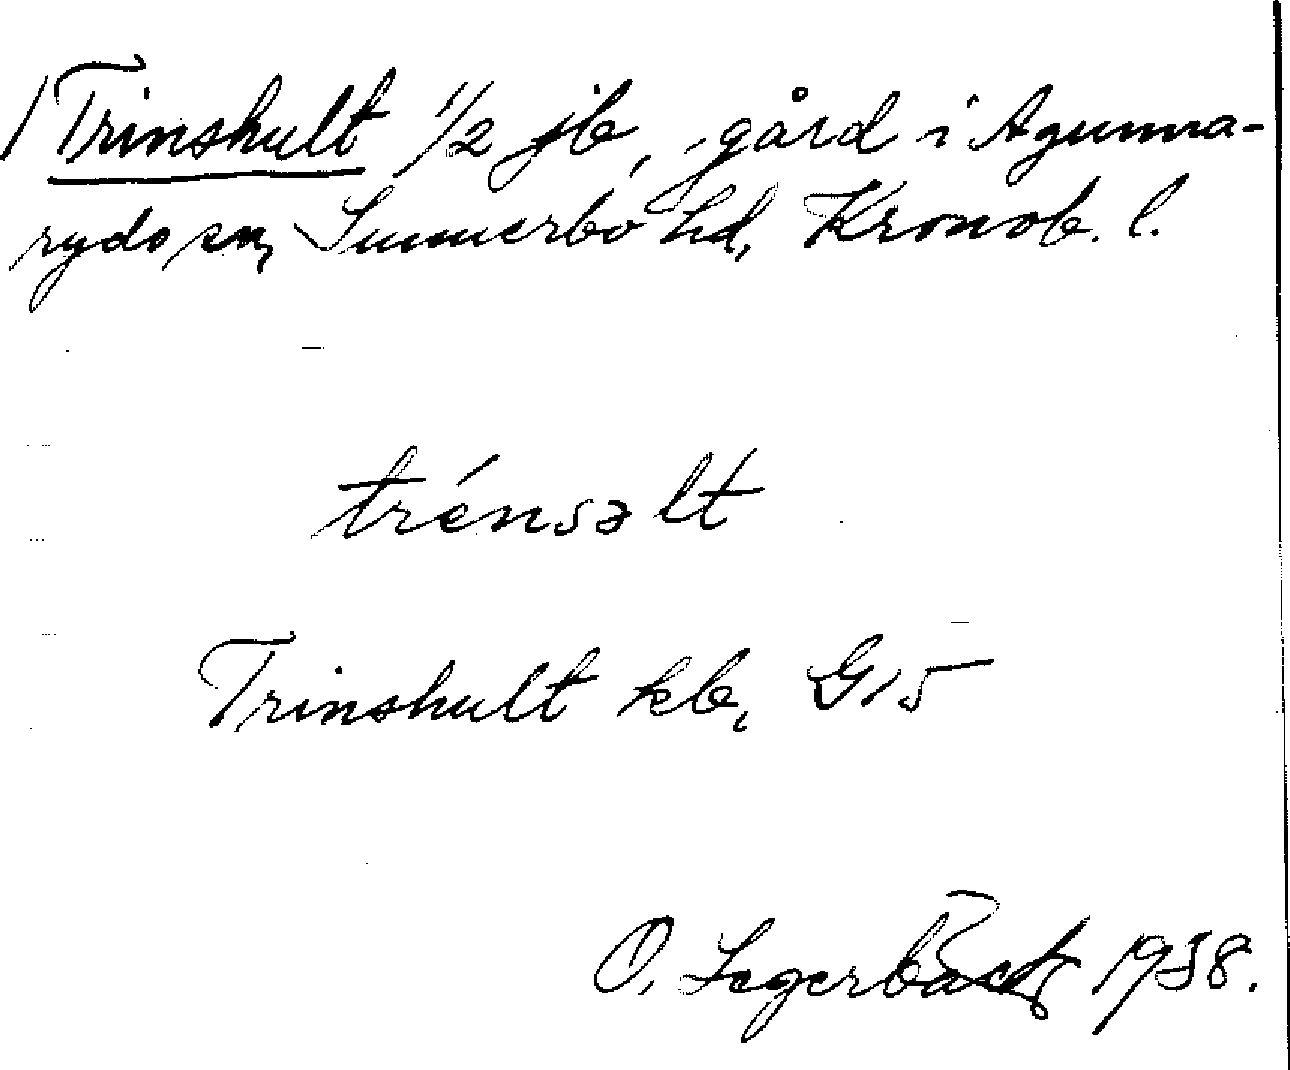 Trinshult 1/2 jb, gård i Agunna-
ryds sn, Sunnerbo hd, Kronob. l.
trénsəlt
Trinshult kb, G15
O. Lagerbäck 1938.